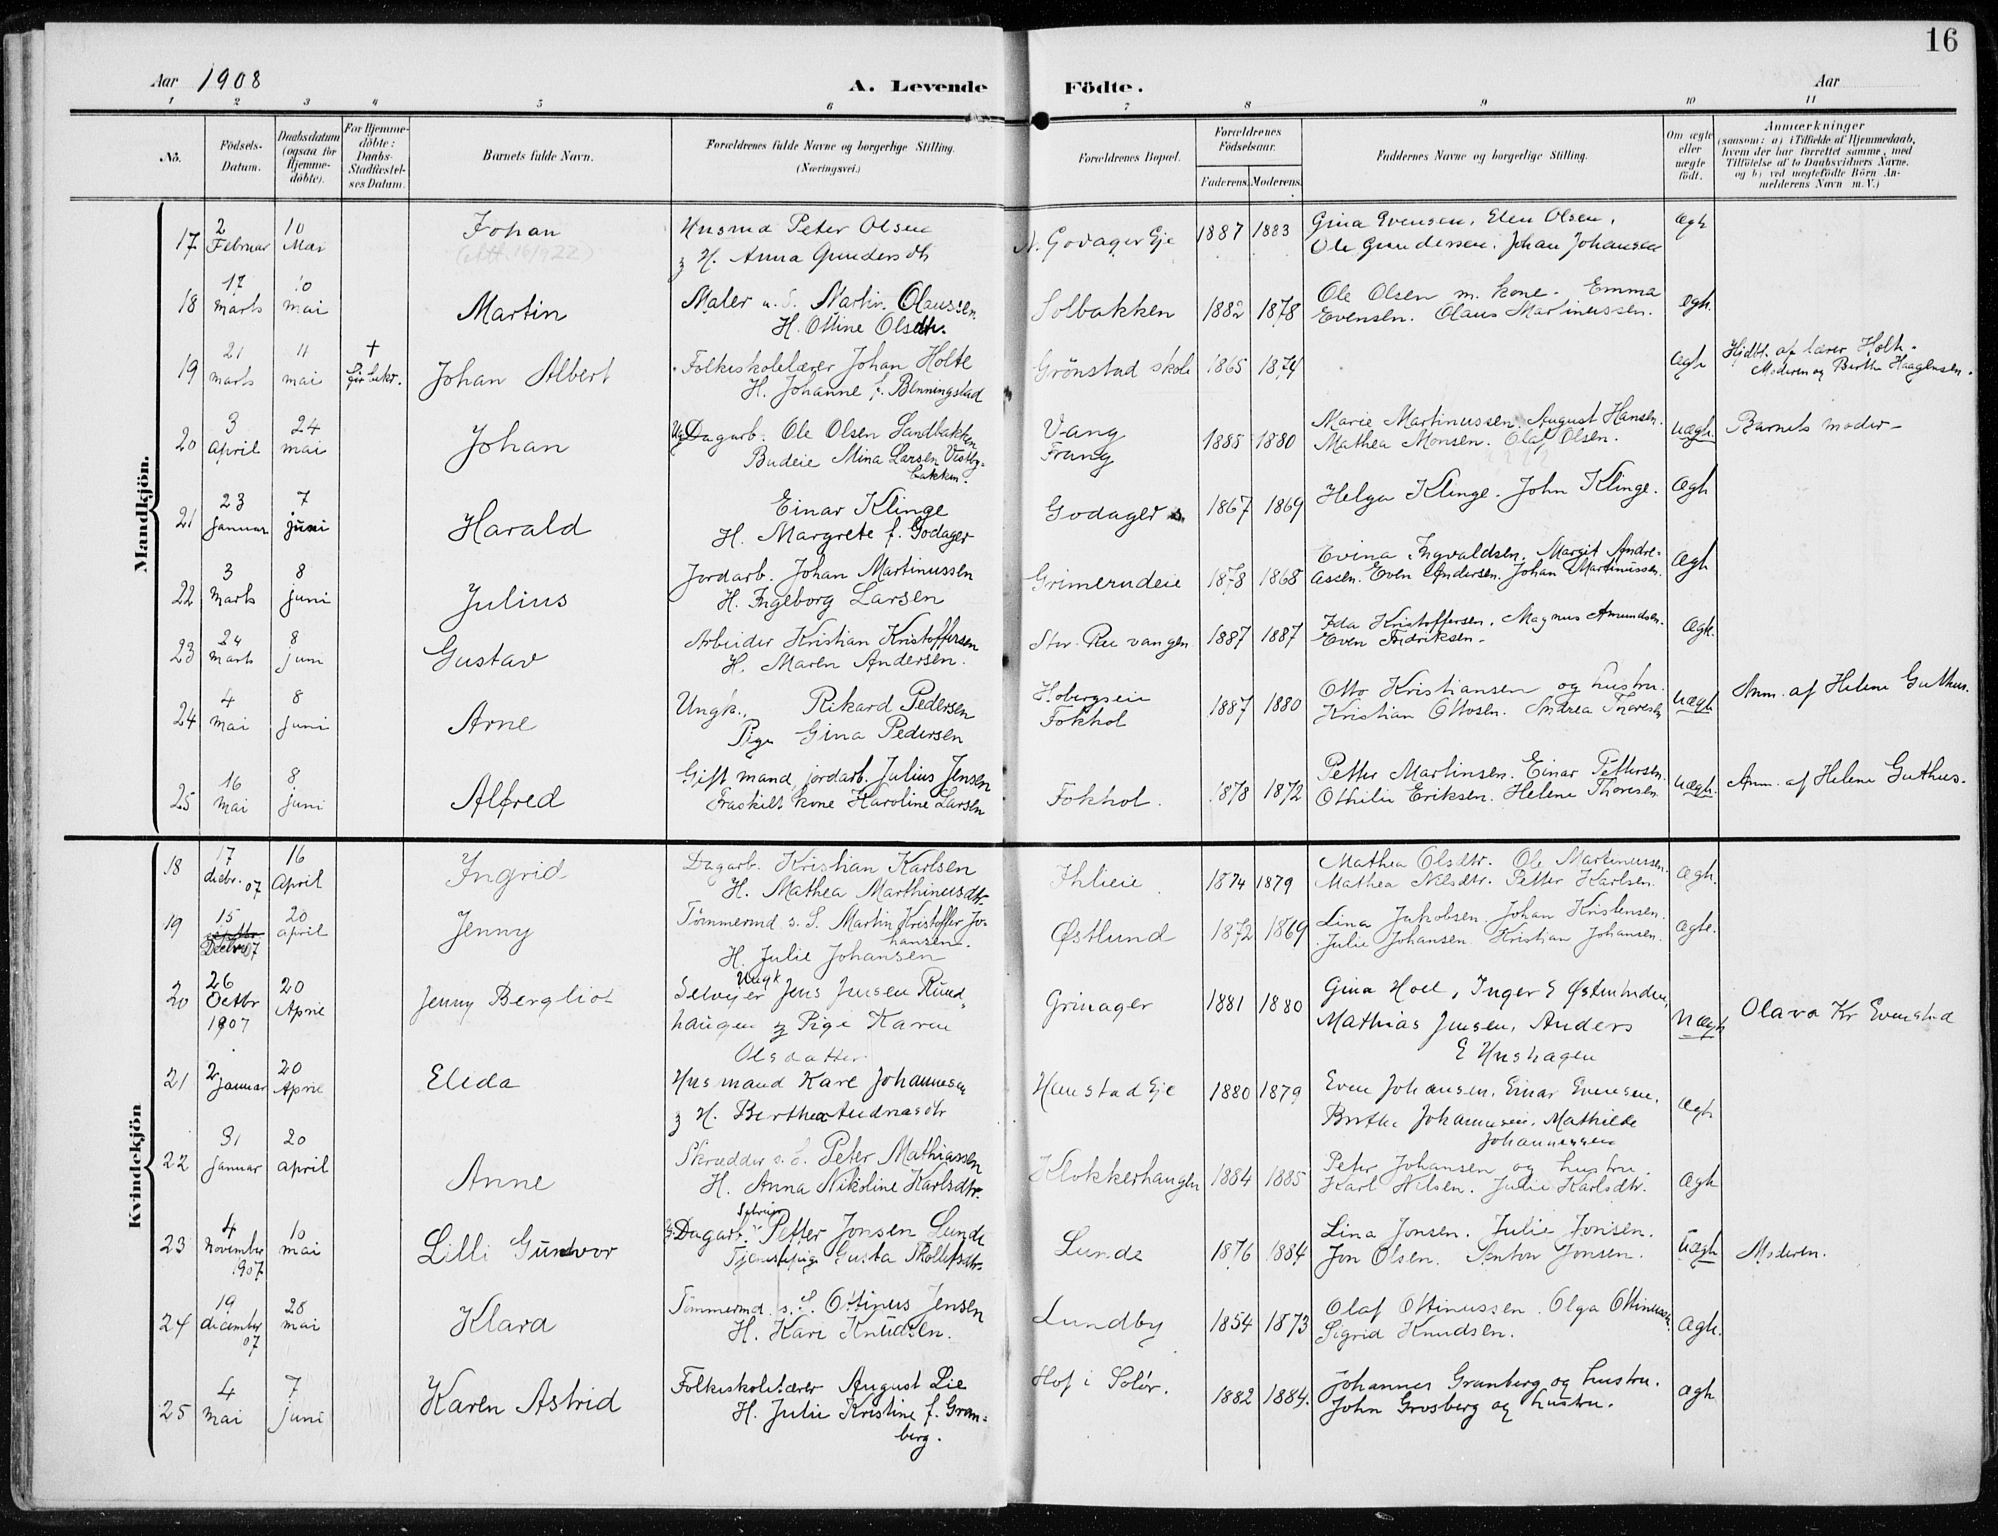 16
Aar 1908
A. Levende Födte.
Aar
1 2 3 4 5 6 7 8 9 10 11
No. Födsels-Datum. Daabsdatum (ogsaa for Hjemme-döbte). For Hjemme-döbte: Daabs-Stadfæstel-ses Datum. Barnets fulde Navn. Forældrenes fulde Navne og borgerlige Stilling. (Næringsvei.) Forældrenes Bopæl. Forældrenes Födselsaar. Faderens. Moderens. Faddernes Navne og borgerlige Stilling. Om ægte eller uægte födt. Anmærkninger (saasom: a) i Tilfælde af Hjemmedaab, hvem der har forrettet samme, med Tilföielse af to Daabsvidners Navne, og b) ved uægtefödte Börn An-melderens Navn m. V.)
Mandkjön.
17 2 Februar 10 Mai Johan Husmd Peter Olsen N. Godager Eje 1887 1883 Gina Evensen, Elen Olsen, ægte
& H. Anna Gundersdtr Ole Gundersen, Johan Johansen
18 17 marts 10 mai Martin Maler u. S. Martin Olaussen Solbakken 1882 1878 Ole Olsen m. kone. Emma ægte.
H. Otline Olsdtr. Evensen. Olaus Martinussen.
19 21 marts 11 mai + Johan Albert Folkeskolelærer Johan Holte Grönstad skole 1865 1874 ægte Hjdbt. af lærer Holte.
H. Johanne f. Benningstad Moderen og Berthe Haagensen.
20 3 April 24 mai Johan Dagarb. Ole Olsen Sandbakken Vang 1885 1880 Marie Martinussen. August Hansen. uægte. Barnets moder
Budeie Mina Larsen Vestby- Frang Mathea Monsen. Olaf Olsen.
bakken.
21 23 januar 7 juni Harald Einar Klinge Godager 1867 1869 Helga Klinge. John Klinge. ægte
H. Margrete f. Godager
22 3 marts 8 juni Julius Jordarb. Johan Martinussen Grimerudeie 1878 1868 Evina Ingvaldsen. Margit Andre- ægte
H. Ingeborg Larsen assen. Even Andersen. Johan Martinussen.
23 24 marts 8 juni Gustav Arbeider Kristian Kristoffersen Stor. Ree vangen 1887 1887 Ida Kristoffersen. Magnus Amundsen. ægte.
H. Maren Andersen. Even Fredriksen.
24 4 mai 8 juni Arne Ungk., Rikard Pedersen Hobergseie 1887 1880 Otto Kristiansen og hustru. uægte Anm. af Helene Guthus.
Pige Gina Pedersen Fokhol Kristian Ottosen. Andrea Thoresen
25 16 mai 8 juni Alfred Gift mand, jordarb. Julius Jensen Fokhol. 1878 1872 Petter Martinsen. Einar Pettersen. uægte. Anm. af Helene Guthus.
Fraskilt kone Karoline Larsen Othilie Eriksen. Helene Thoresen.
Kvindekjön
18 17 decbr. 07 16 April Ingrid Dagarb. Kristian Karlsen Ihleie 1874 1879 Mathea Olsdtr. Ole Martinussen. ægte.
H. Mathea Marthinusdtr. Mathea Nilsdtr. Petter Karlsen.
19 15 Decbr 07 20 april Jenny Tömmermd s. S. Martin Kristoffer Jo- Østlund 1872 1869 Lina Jakobsen. Johan Kristensen. ægte.
hansen. Julie Johansen Kristian Johansen.
H. Julie Johansen
20 26 Octbr 1907 20 April Jenny Bergliot Ungk Selveier Jens Jensen Rund- Grinager 1881 1880 Gina Hoel, Inger E Østenhden, uægte Olava Kr Evenstad
haugen & Pige Karen Mathias Jensen, Anders
Olsdatter E Hushagen
21 2 januar 20 April Elida Husmand Karl Johannesen Henstad Eje 1880 1879 Even Johansen, Einar Evensen, ægte.
& H. Berthea Andreasdtr Berthe Johannesen. Mathilde
Johannessen
22 31 januar 20 april Anne Skrædder s. S. Peter Mathiassen Klokkerhaugen 1884 1885 Peter Johansen og hustru. ægte
H. Anna Nikoline Karlsdtr. Karl Nilsen. Julie Karlsdtr.
23 4 November 1907 10 mai Lilli Gundvor Dagarb. Selveier Petter Jonsen Lunde Lunde 1876 1884 Lina Jonsen. Julie Jonsen. uægte Moderen.
Tjenestepige Gusta Jon Olsen. Anton Jonsen.
24 19 december 07 28 mai Klara Tömmermd. s. S. Ottinus Jensen Lundby 1854 1873 Olaf Ottinussen. Olga Ottinussen. ægte.
H. Kari Knudsen. Sigrid Knudsen.
25 4 mai 7 juni Karen Astrid Folkeskolelærer August Lie Hof i Solör. 1882 1884. Johannes Granberg og hustru. ægte
H. Julie Kristine f. Gran- John Grosberg og hustru.
berg.